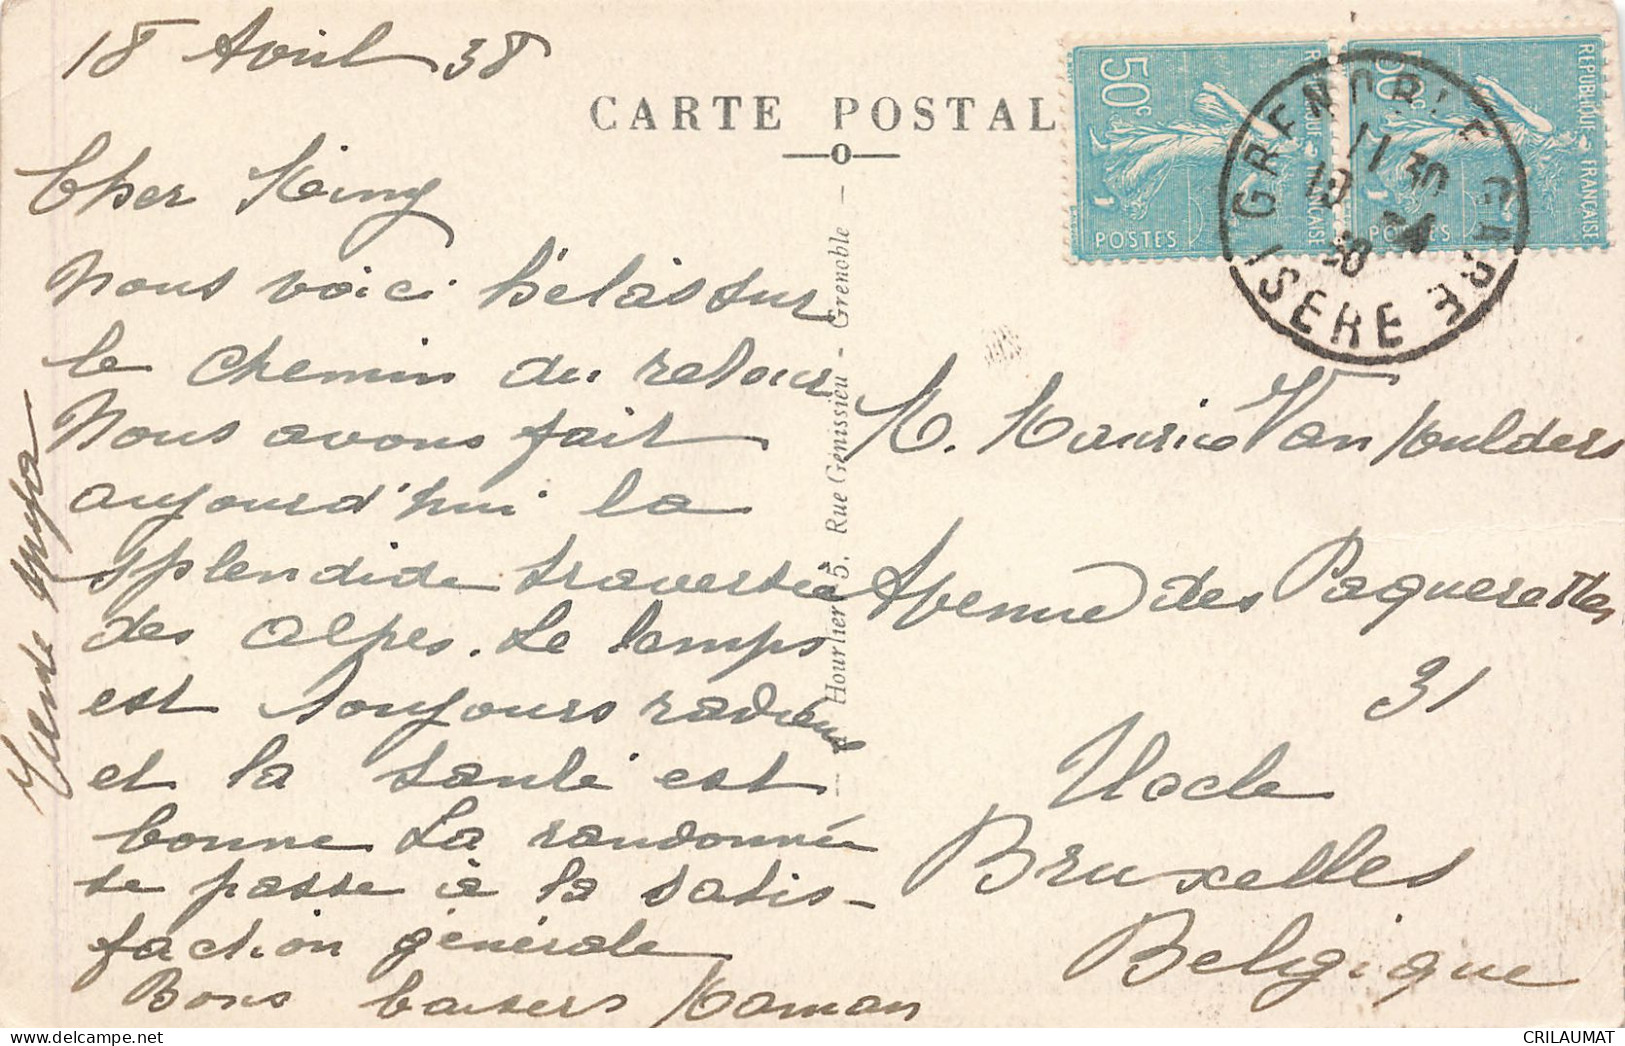 18 Avril 38
CARTE POSTAL
Cher
Nous voici hélas sur
le chemin du retour
Nous avons fait
aujourd'hui la
splendide traversée
des Alpes. Le temps
est toujours radieux
et la santé est
bonne La randonnée
se passe à la satis-
faction générale
Bons baisers Maman
Hourlier 5, Rue Génissieu - Grenoble
50c
REPUBLIQUE FRANÇAISE
POSTES
50c
REPUBLIQUE FRANÇAISE
POSTES
GRENOBLE GARE
11 30
19
38
ISERE
M. Maurice Van Mulders
Avenue des Paquerettes
31
Uccle
Bruxelles
Belgique
CRILAUMAT